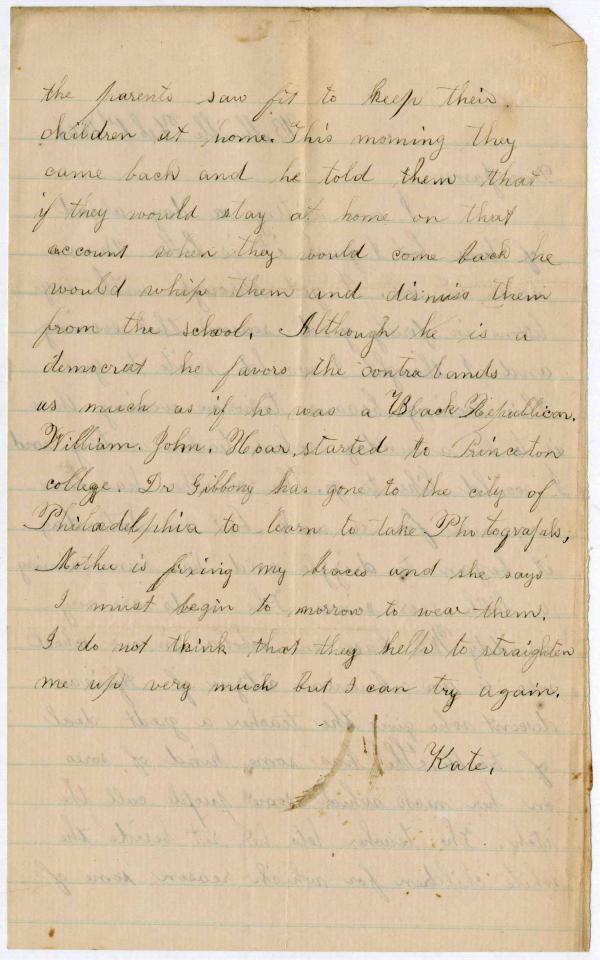 the parents saw fit to keep their
children at home. This morning they
came back and he told them that
if they would stay at home on that
account when they would come back he
would whip them and dismiss them
from the school. Although he is a
democrat he favors the contrabands
as much as if he was a Black Republican.
William. John. Hoar, started to Princeton
college. Dr Gibbony has gone to the city of
Philadelphia to learn to take Photografals,
Mother is fixing my braces and she says
I must begin to morrow to wear them.
I do not think that they help to straighten
me up very much but I can try again.
Kate.